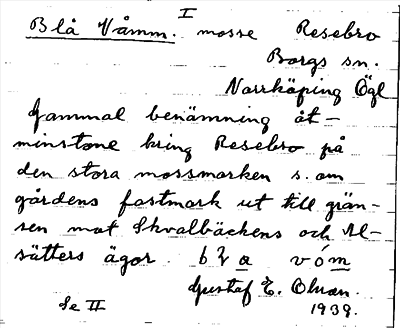 I
Blå Våmm. mosse Resebro
Borgs sn.
Norrköping Ögl
Gammal benämning åt-
minstone kring Resebro på
den stora mossmarken s. om
gårdens fastmark ut till grän-
sen mot Skvalbäckens och Al-
sätters ägor.
Gustaf E. Olsson.
Se II 1939.